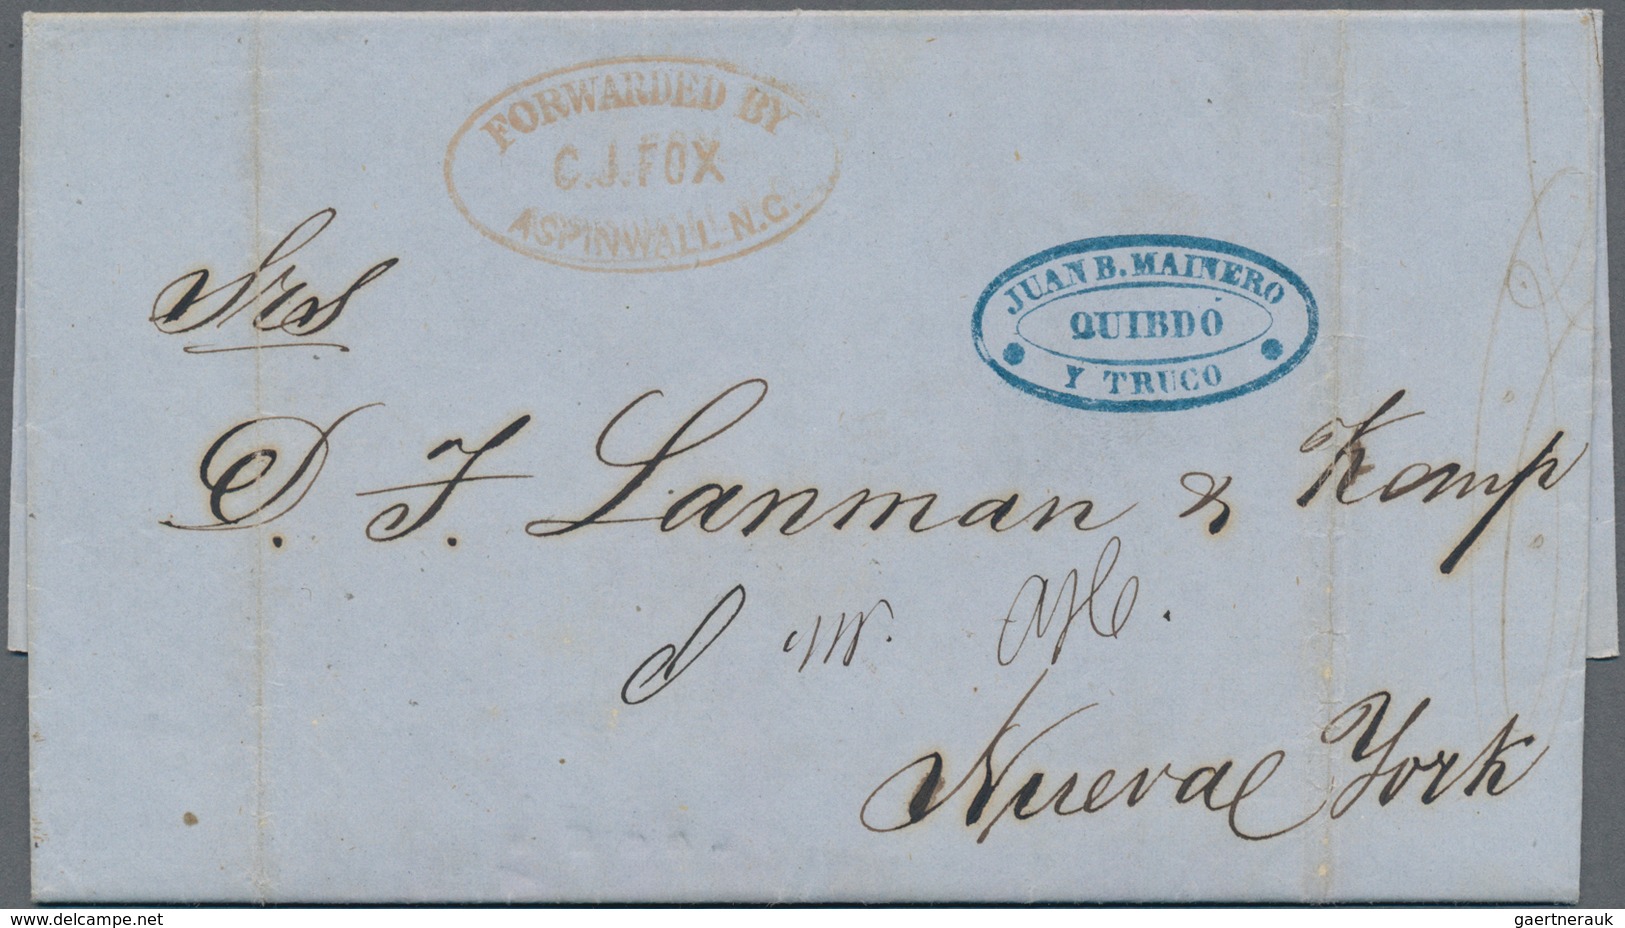 FORWARDED BY
C.J.FOX
ASPINWALL N.G.
JUAN B. MAINERO
QUIBDÓ
Y TRUCO
Srs
D. F. Lanman & Kemp
Nueva York
www.delcampe.net
gaertnerauk